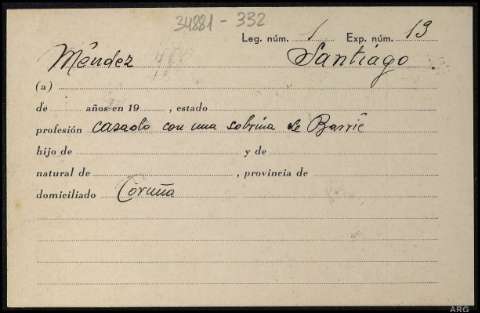 34881 - 332
Leg. núm. 1 Exp. núm. 13
Méndez Santiago
(a)
de años en 19 , estado
profesión casado con una sobrina de Barrié
hijo de y de
natural de , provincia de
domiciliado Coruña
ARG